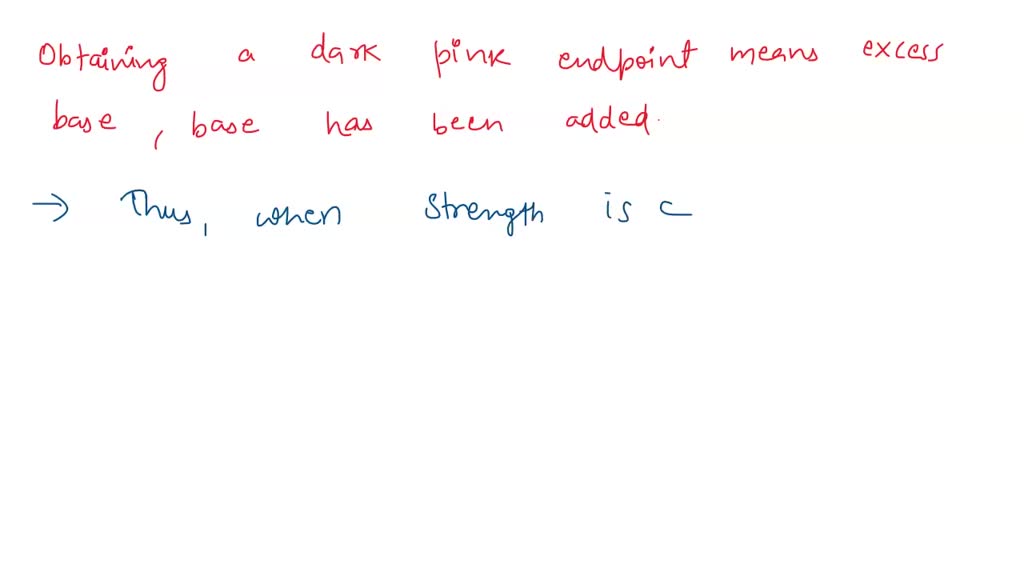 Obtaining a dark pink endpoint means excess
base, base has been added.
→ Thus, when strength is c